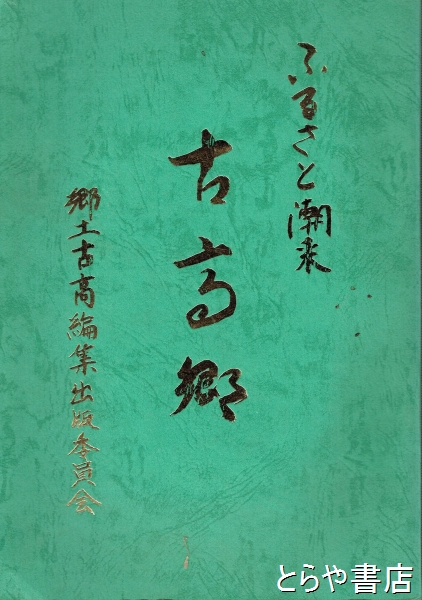 ふるさと潮来
古高郷
郷土古高編集出版委員会
とらや書店